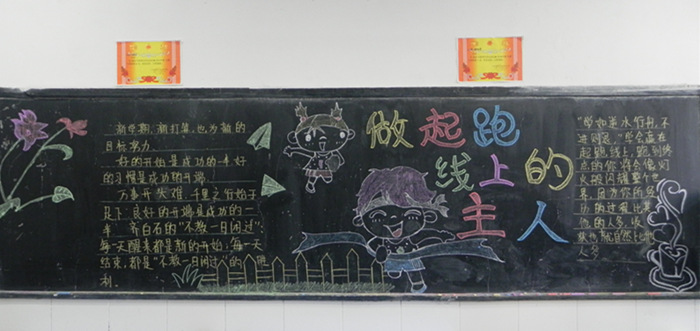 新学期,新打算,也为新的
目标努力.
好的开始是成功的一半 好
的习惯是成功的开端.
万事开头难,千里之行始于
足下.良好的开端是成功的一
半.齐白石的"不教一日闲过",
每一天醒来都是新的开始,每一天
结束,都是"不教一日闲过"的胜
利.
做起跑
线上的
主人
"学如逆水行舟,不
进则退."会赢在
起跑线上,跑到终
点的你将会像
般闪耀整个世
界,因为你所经
历的过程比其
他的人多,收
获也就自然比他
人多.